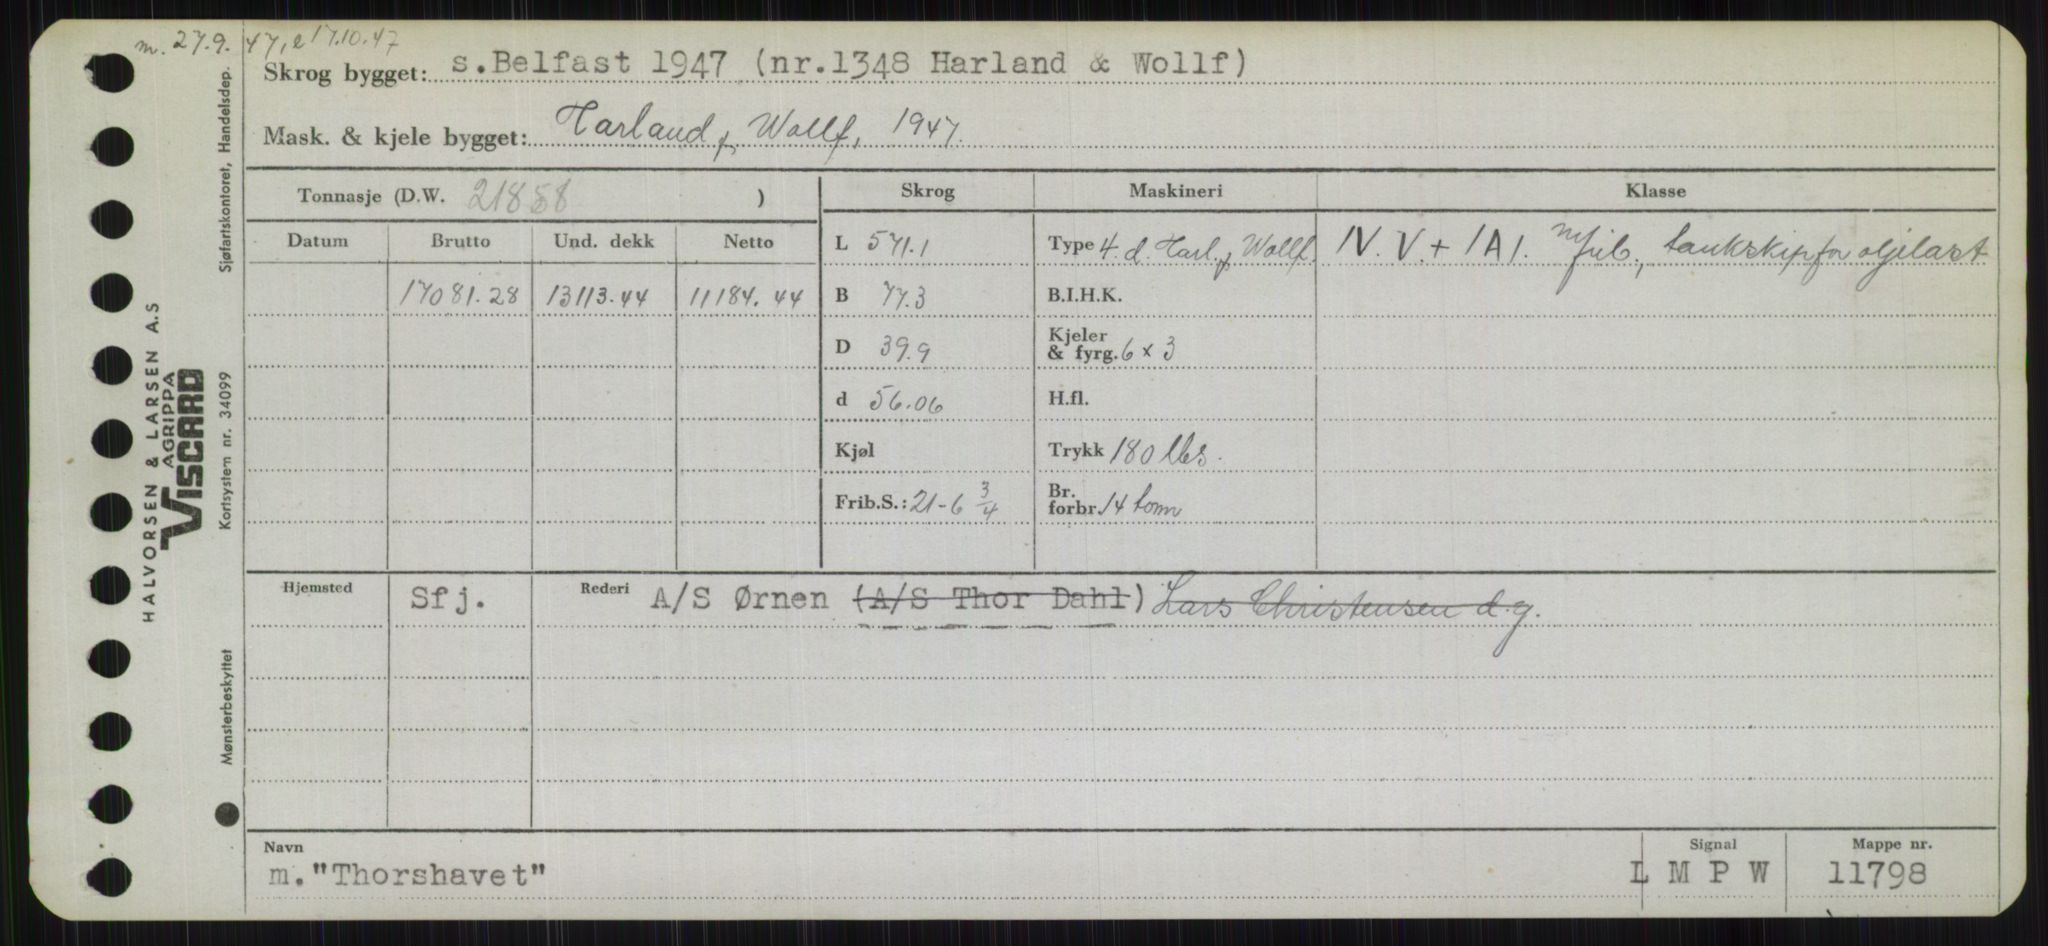 m. 27.9. 47, e 17.10.47
Skrog bygget: s.Belfast 1947 (nr.1348 Harland & Wollf)
Mask. & kjele bygget: Harland & Wollf, 1947.
Tonnasje (D.W. 21858 )
Skrog Maskineri Klasse
Datum Brutto Und. dekk Netto
L 571.1 Type 4. d. Harl. & Wollf. IV. V. + 1A1. m/frib., tankskip for oljelast
17081.28 13113.44 11184.44 B 77.3 B.I.H.K.
D 39.9 Kjeler & fyrg. 6 x 3
d 56.06 H.fl.
Kjøl Trykk 180 lbs.
Frib.S.: 21-6 3/4 Br. forbr. 14 tonn
Hjemsted Sfj. Rederi A/S Ørnen (A/S Thor Dahl) Lars Christensen d.y.
Navn Signal Mappe nr.
m. "Thorshavet" L M P W 11798
HALVORSEN & LARSEN A.S
AGRIPPA
VISCARD
Mønsterbeskyttet Kortsystem nr. 34099 Sjøfartskontoret, Handelsdep.